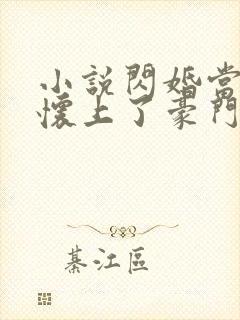 小說閃婚當
懷上了豪門
綦江區